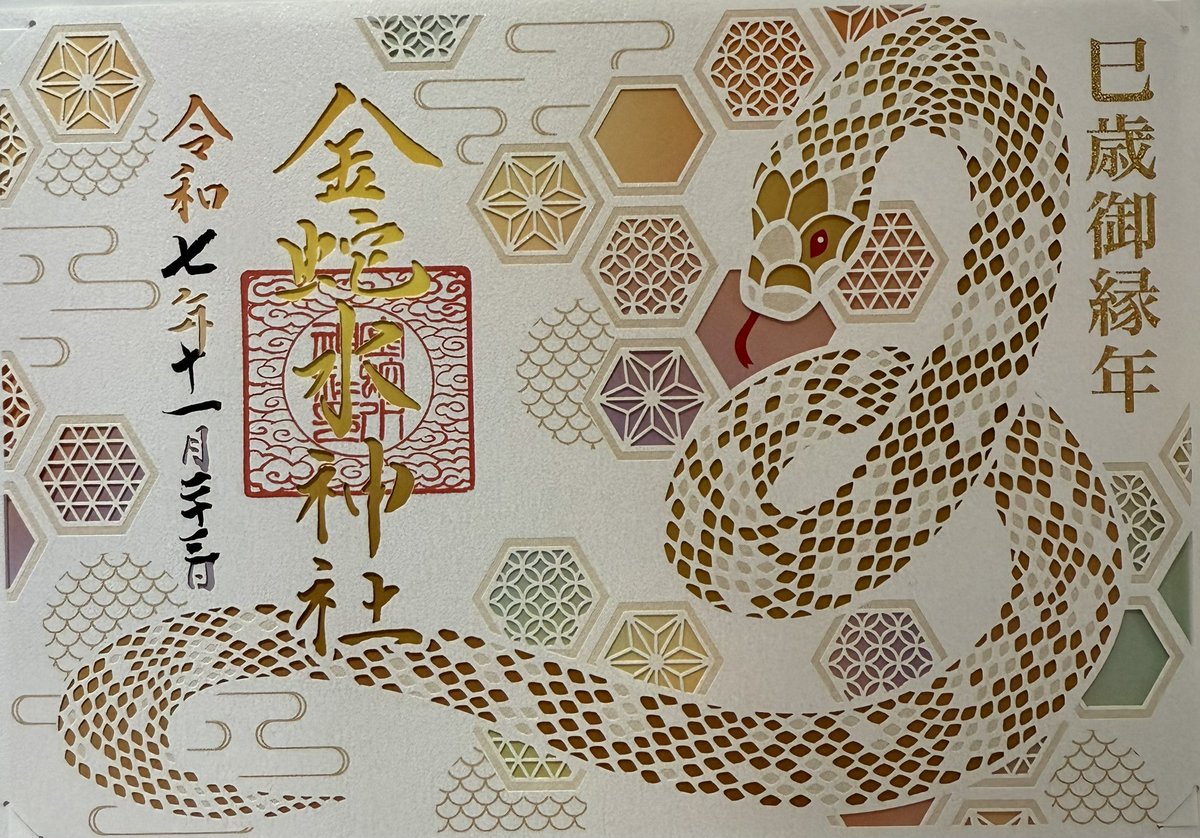 巳歳御縁年
金蛇水神社
令和七年十一月二十三日